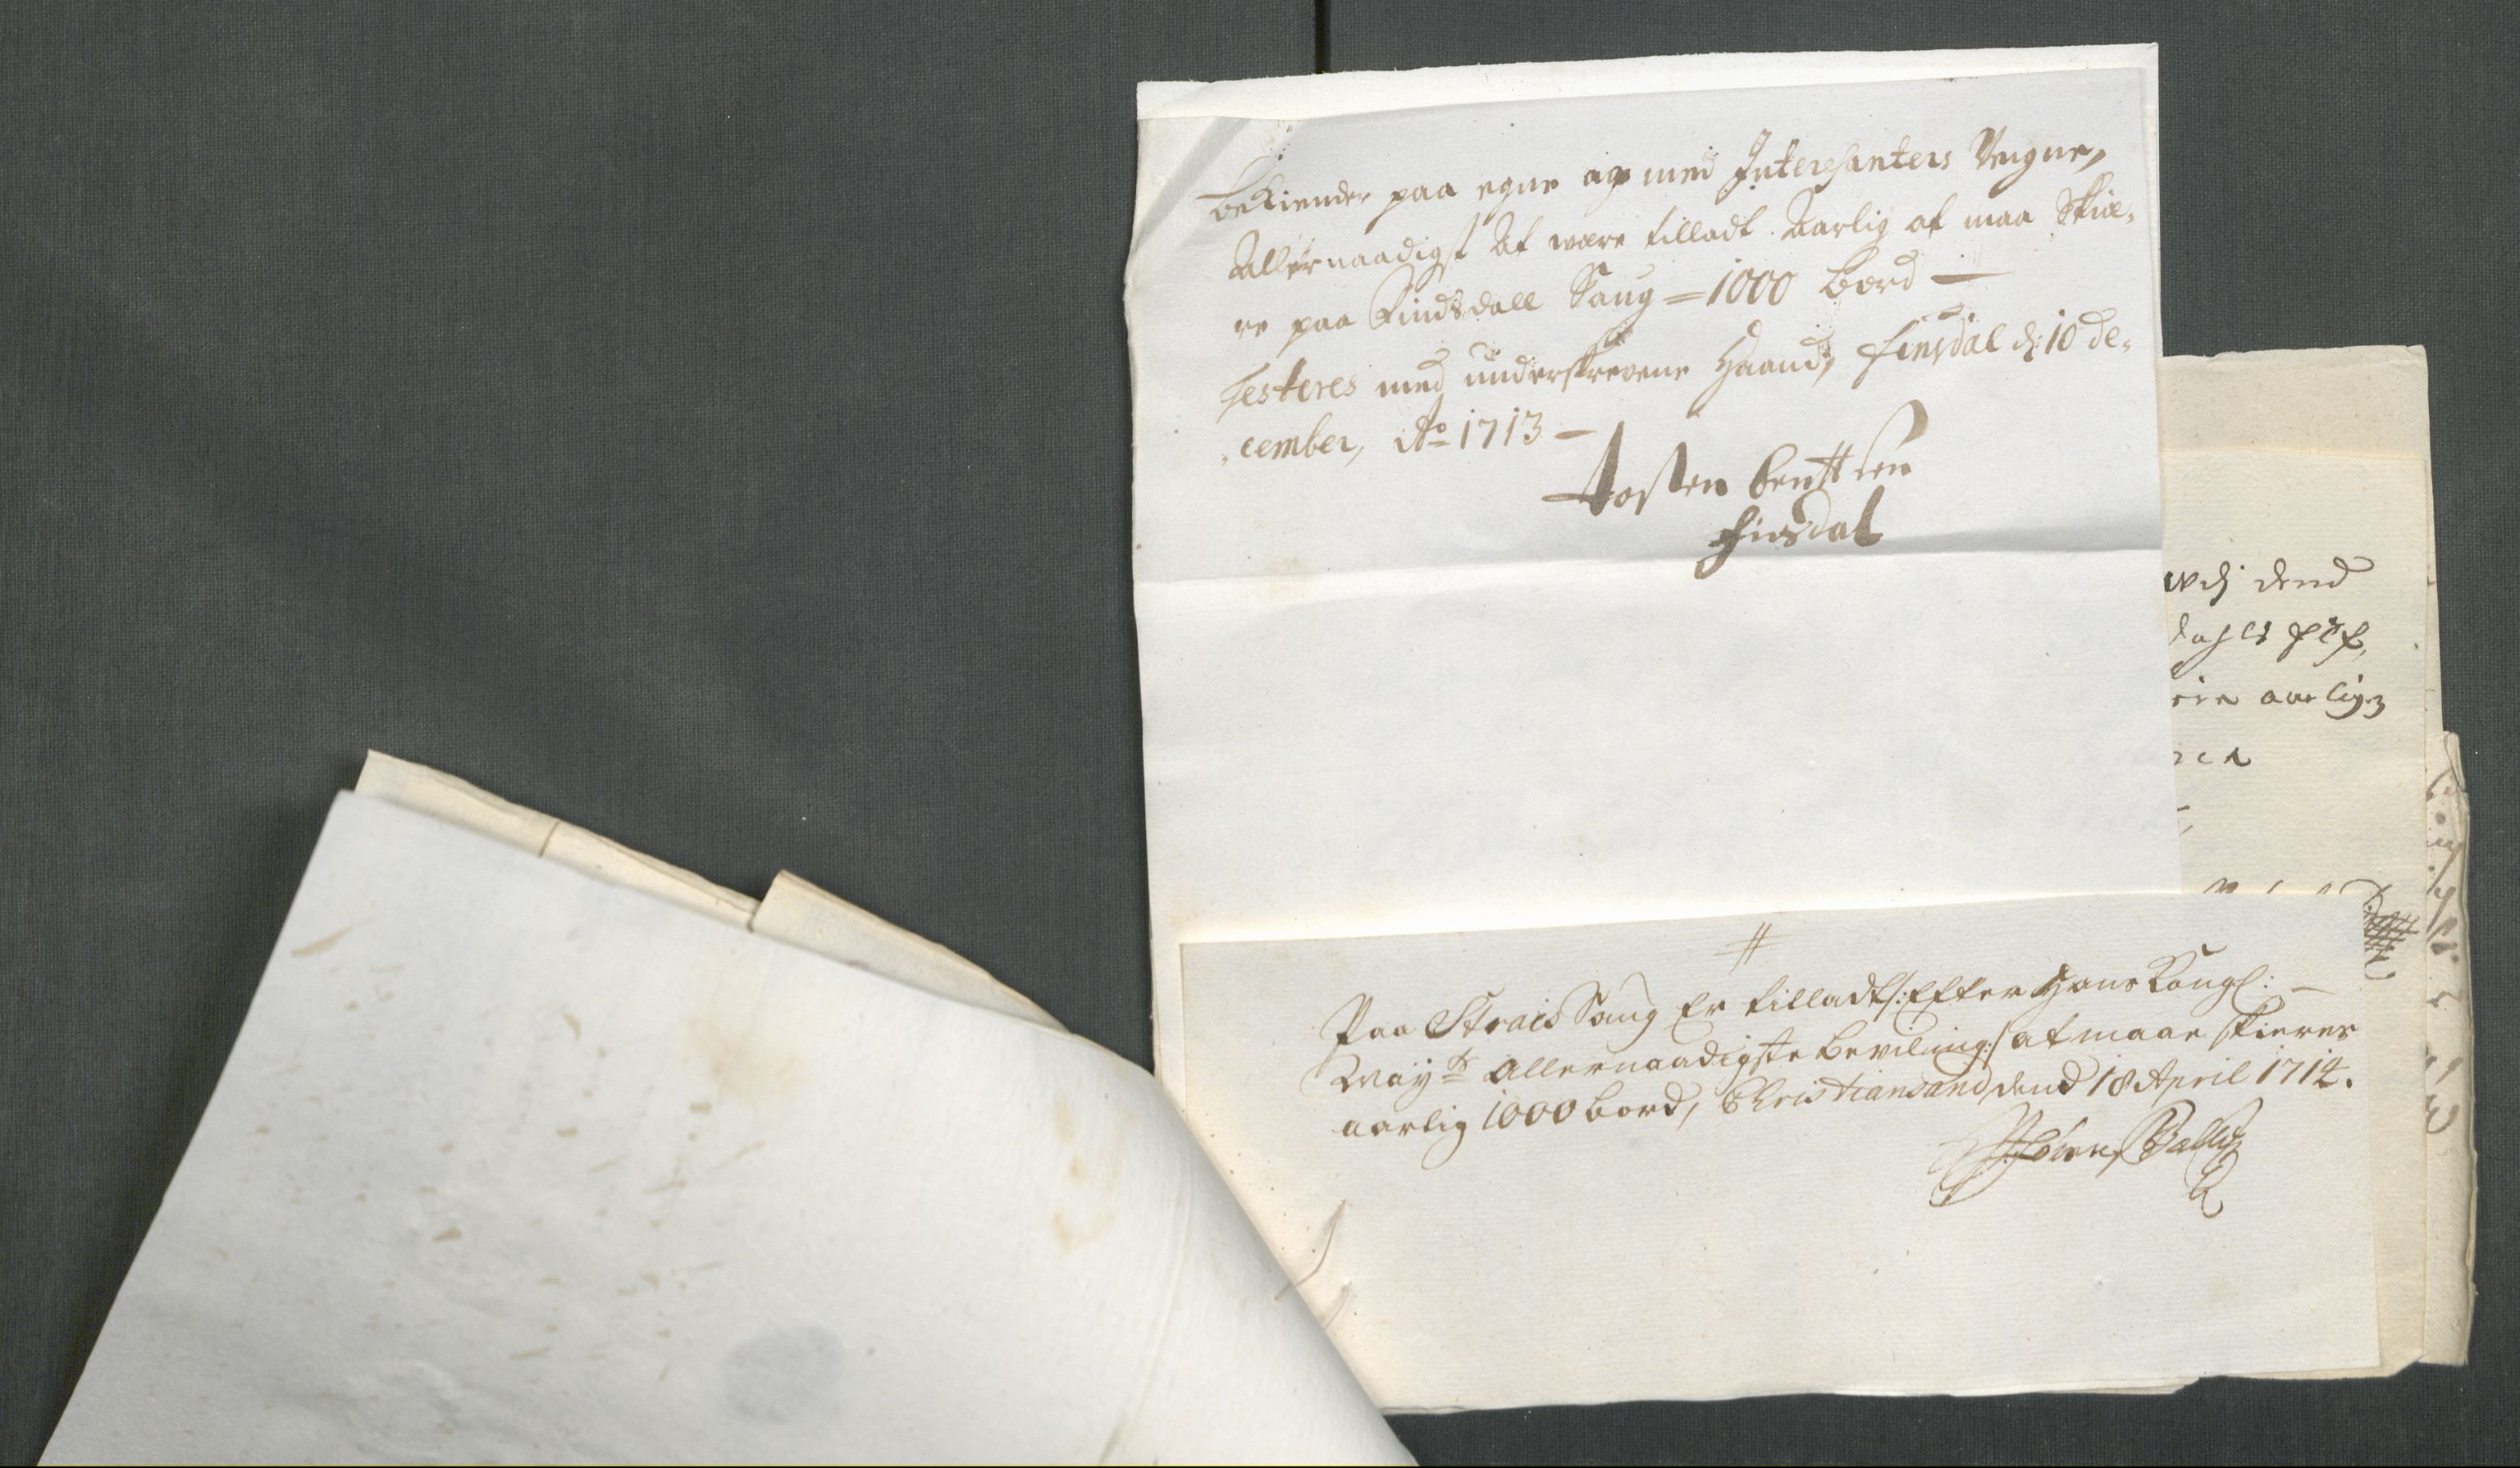 Bekiender paa egne og med Interesanters Vegne,
Allernaadigst At være tilladt Aarlig at maa Skiæ-
re paa Findsdall Saug = 1000 bord —
testeres med underskrevene Haand, Finsdal d: 10 de-
cember, Ao 1713 —
tosten bentsen
finsdal
dend
aarligen
#
Paa Strais Saug Er tilladt /: Efter Hans Kongl: —
Mayts Allernaadigste bevilning :/ at maae skieres
aarlig 1000 bord, Christiansand dend 18 April 1714.